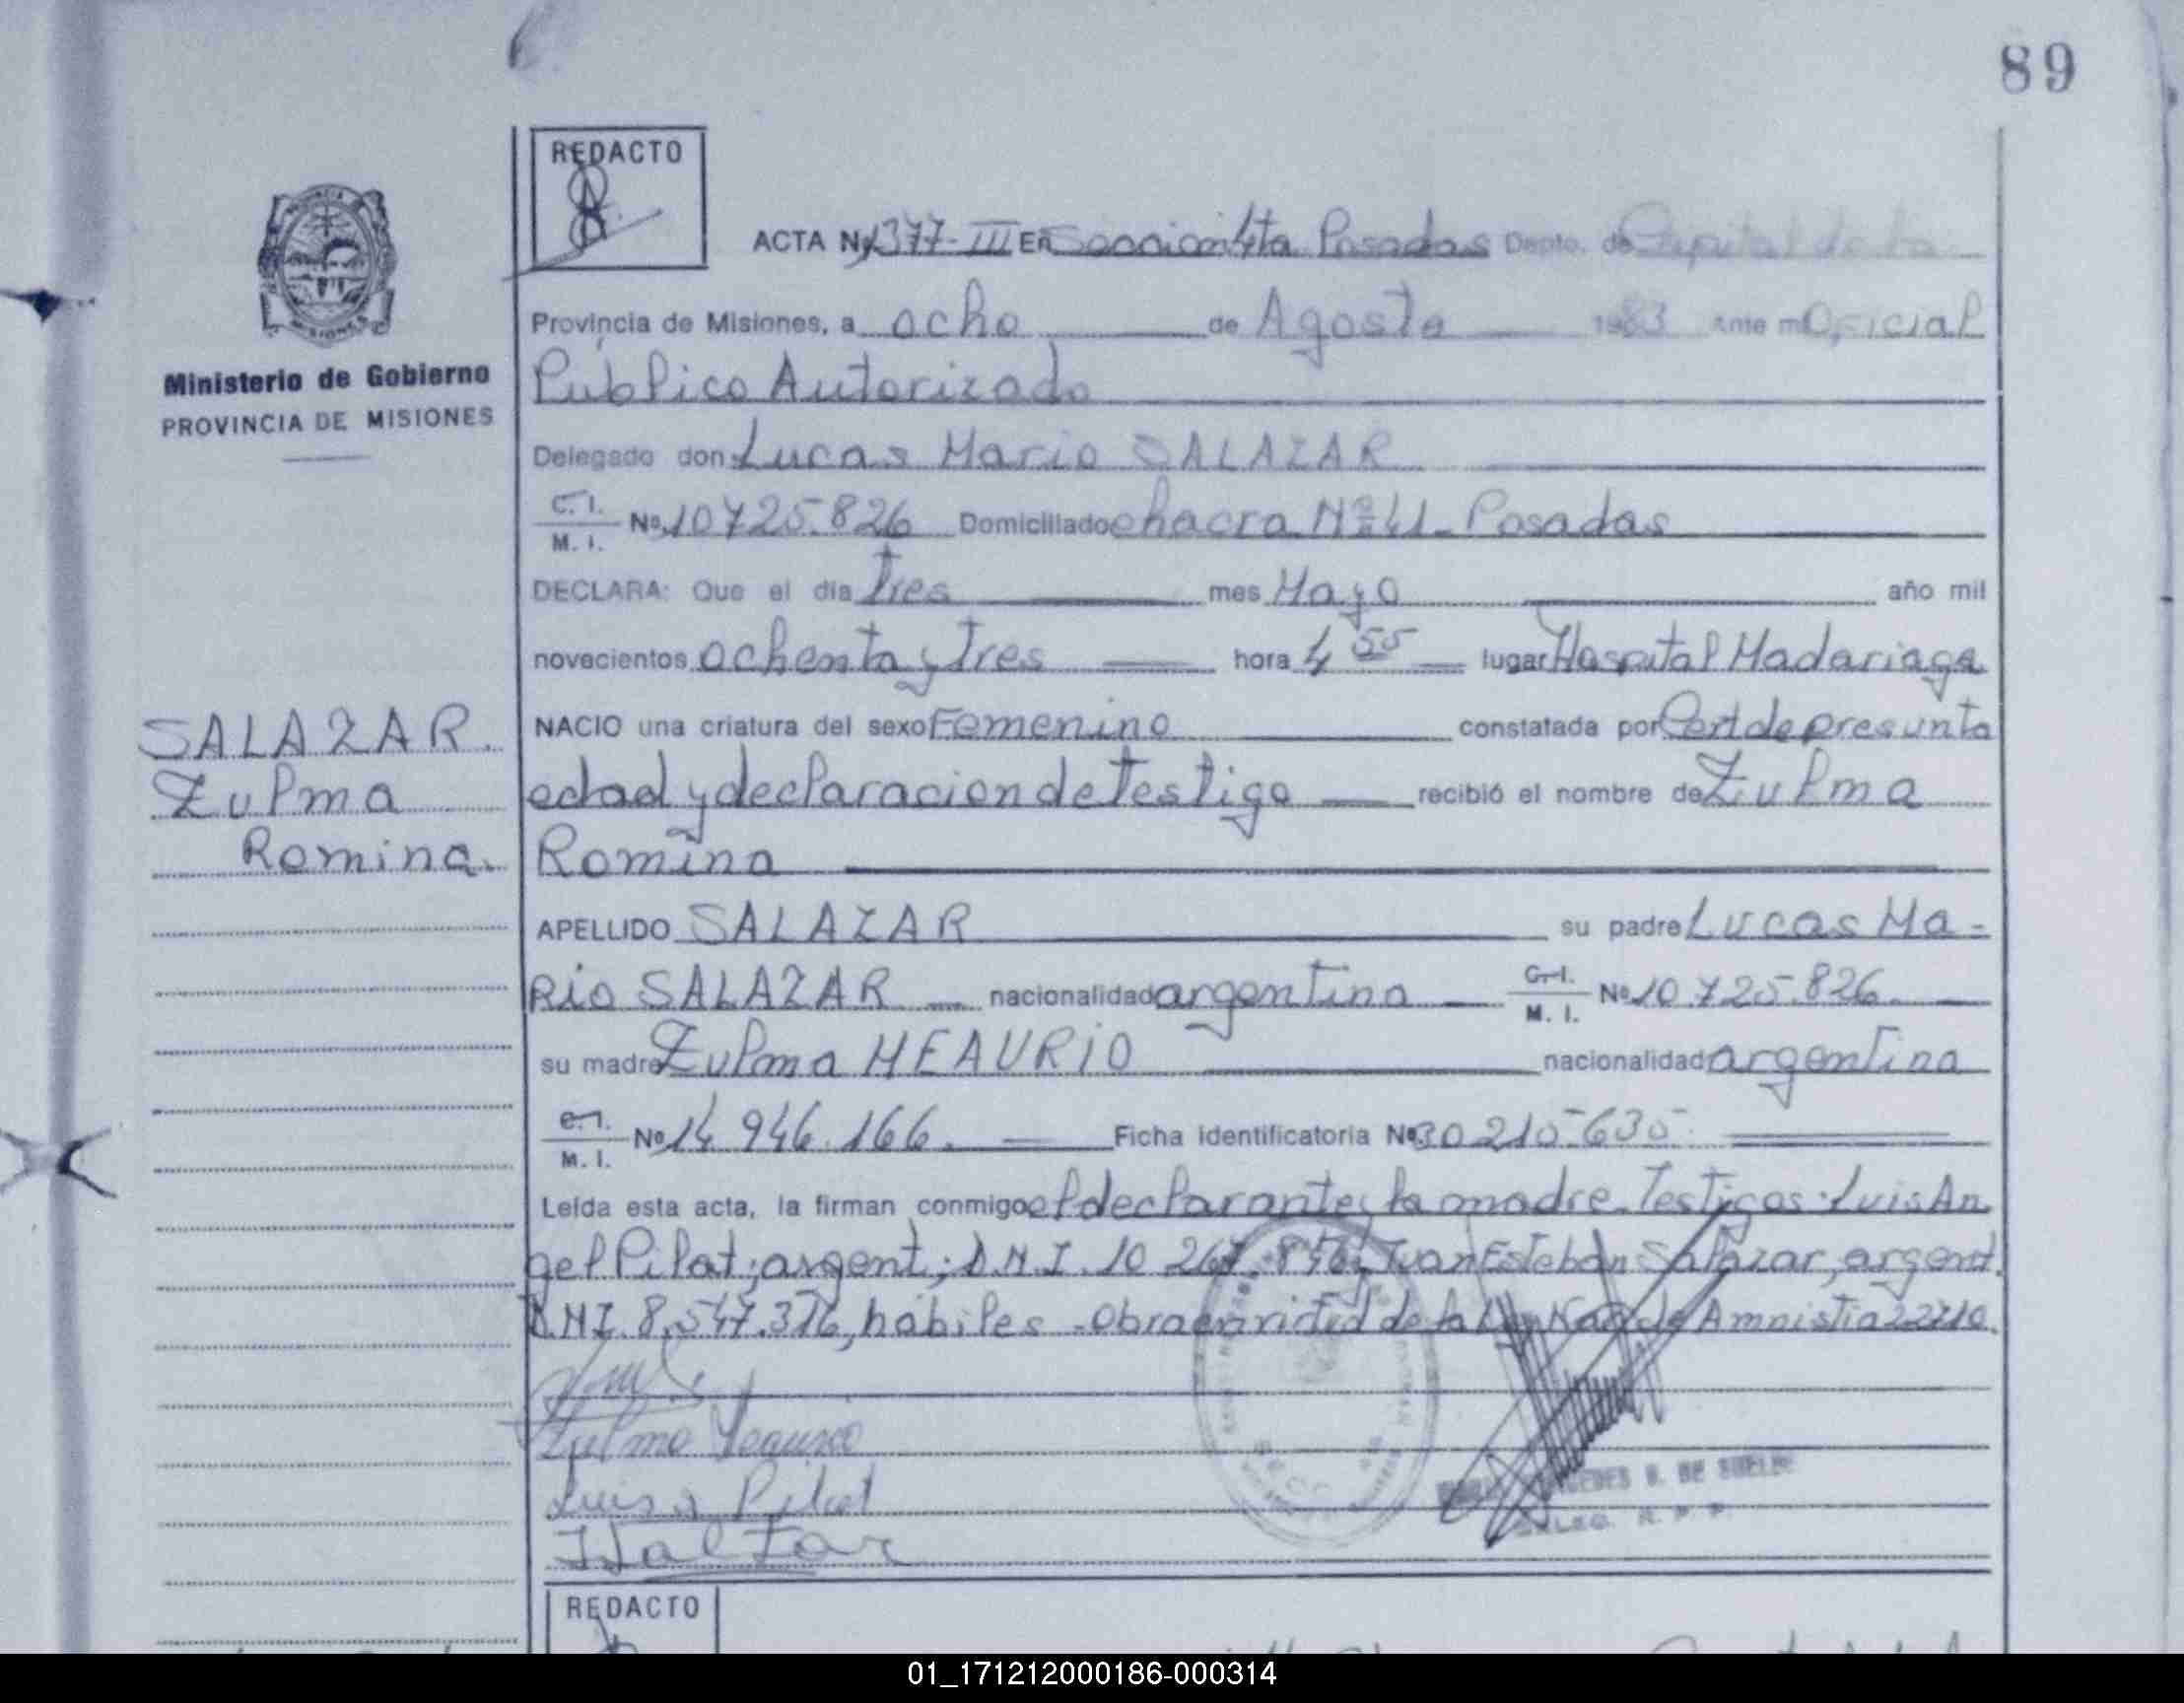 89
REDACTO
ACTA Nº 1377-III EN Sección 4ta Posadas Depto. de Capital de la
Provincia de Misiones, a ocho de Agosto 1983 Ante mi Oficial
Público Autorizado
Ministerio de Gobierno
PROVINCIA DE MISIONES
Delegado don Lucas Mario SALAZAR
C. I.
M. I. Nº 10.725.826 Domiciliado chacra Nº 41- Posadas
DECLARA: Que el día tres mes Mayo año mil
novecientos ochenta y tres hora 4 55 lugar Hospital Madariaga
NACIO una criatura del sexo Femenino constatada por Cert de presunta
edad y declaracion de testigo recibió el nombre de Zulma
Romina
SALAZAR.
Zulma
Romina.
APELLIDO SALAZAR su padre Lucas Ma-
Rio SALAZAR nacionalidad argentina C. I.
M. I. Nº 10.725.826
su madre Zulma HEAURIO nacionalidad argentina
C. I.
M. I. Nº 14.946.166. Ficha identificatoria Nº 30.215.635
Leída esta acta, la firman conmigo el declarante y la madre. Testigos: Luis An
gel Pilat; argent; D.N.I. 10 267 856, Juan Esteban Salazar, argent.
D.N.I. 8.547.376, hábiles - Obra en virtud de la Ley Nac de Amnistia 22410.
Zulma
Luis A Pilat
DE
DELEG. R. P. P.
REDACTO
01_171212000186-000314